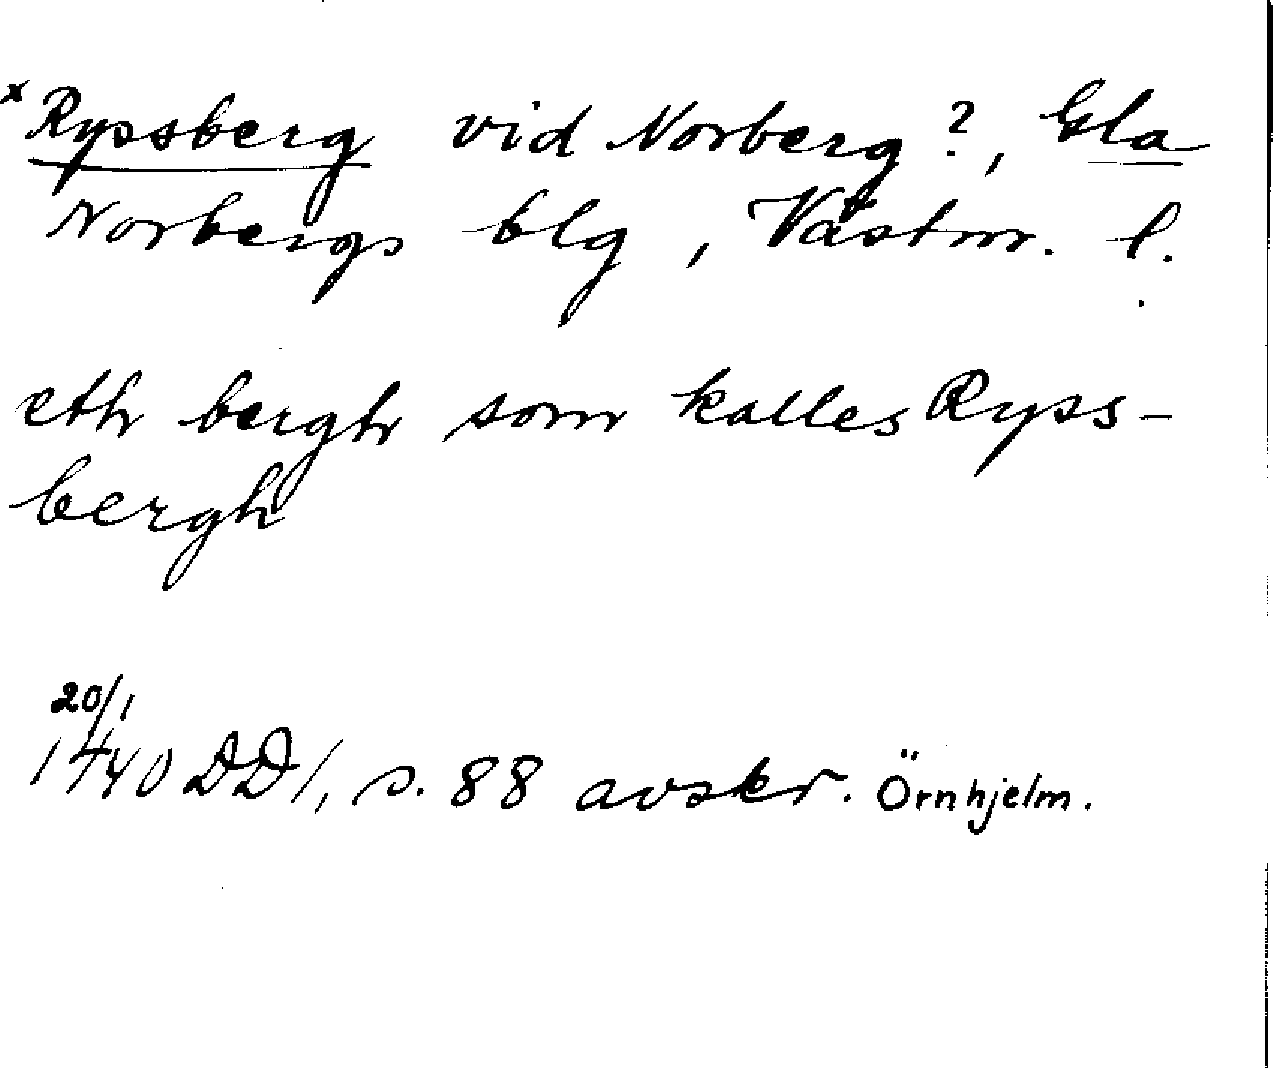 x Ryssberg vid Norberg?, Gla
Norbergs blg, Västm. l.
eth bergh som kalles Ryss-
bergh
20/1
1440 DD1, s. 88 avskr. Örnhjelm.